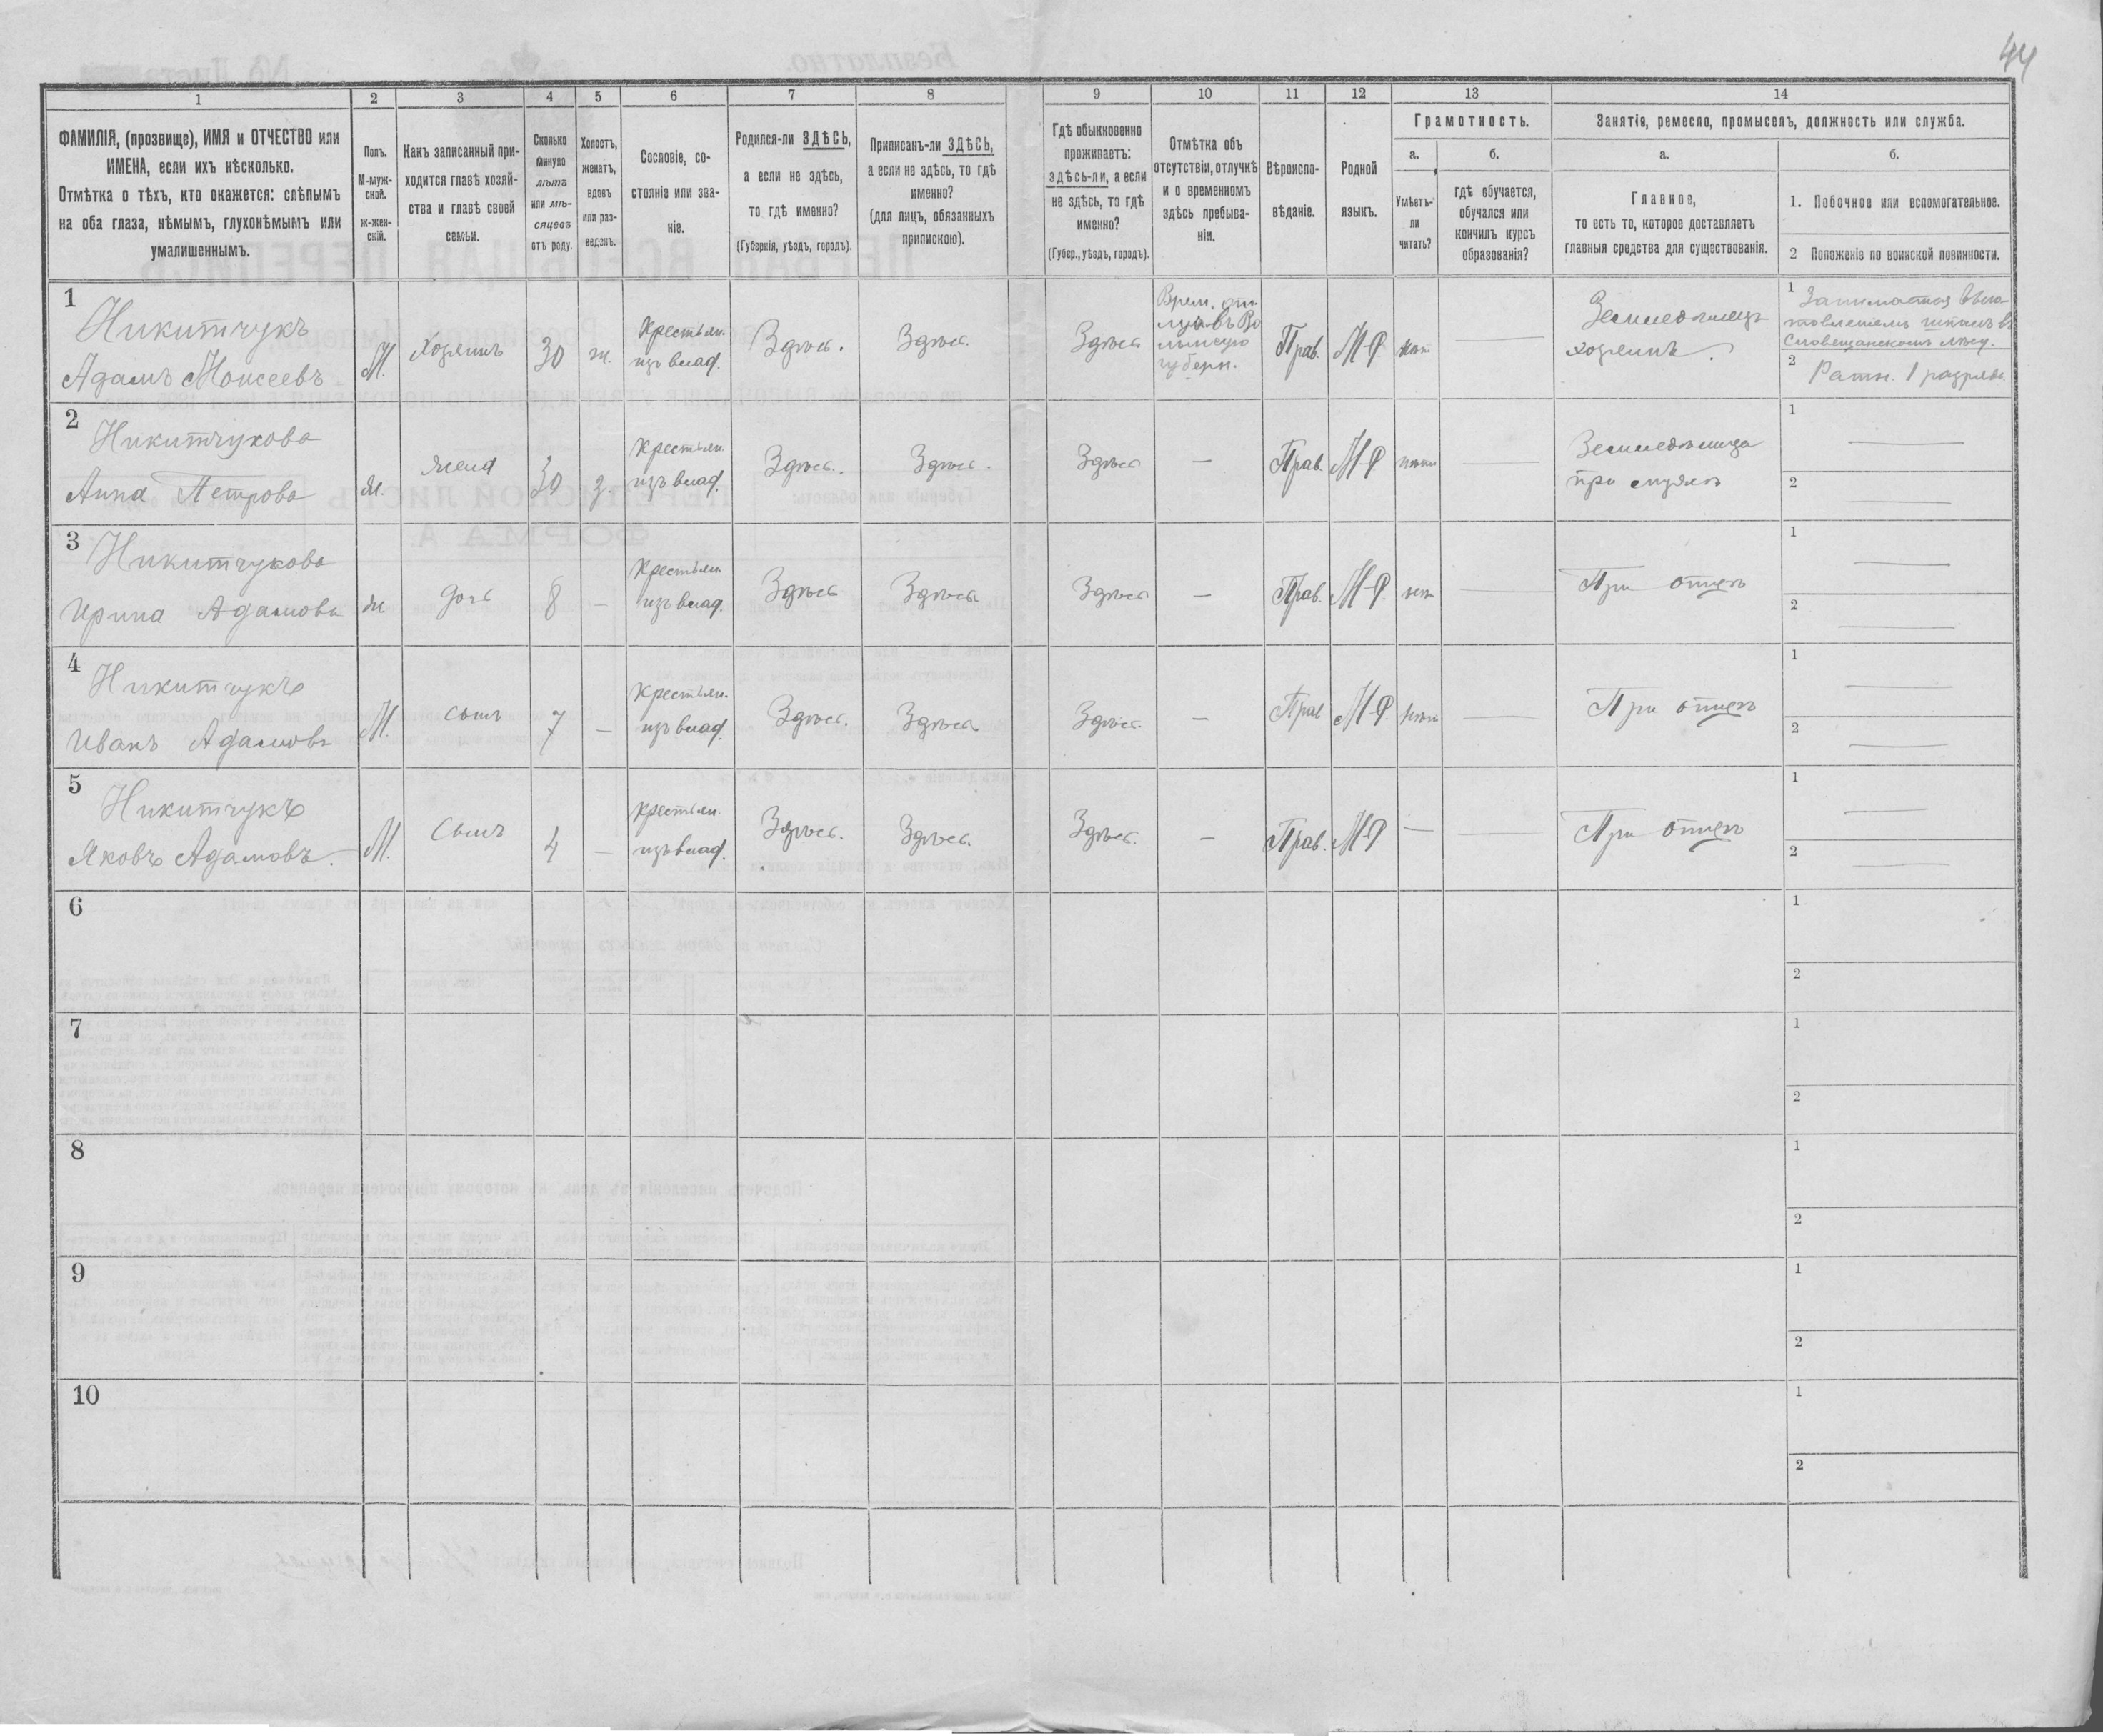 44
1 2 3 4 5 6 7 8 9 10 11 12 13 14
ФАМИЛІЯ, (прозвище), ИМЯ и ОТЧЕСТВО или
ИМЕНА, если ихъ нѣсколько.
Отмѣтка о тѣхъ, кто окажется: слѣпымъ
на оба глаза, нѣмымъ, глухонѣмымъ или
умалишеннымъ.
Полъ.
М-муж-
ской.
ж-жен-
скій.
Какъ записанный при-
ходится главѣ хозяй-
ства и главѣ своей
семьи.
Сколько
минуло
лѣтъ
или мѣ-
сяцевъ
отъ роду.
Холостъ,
женатъ,
вдовъ
или раз-
веденъ.
Сословіе, со-
стояніе или зва-
ніе.
Родился-ли ЗДѢСЬ,
а если не здѣсь,
то гдѣ именно?
(Губернія, уѣздъ, городъ).
Приписанъ-ли ЗДѢСЬ,
а если не здѣсь, то гдѣ
именно?
(для лицъ, обязанныхъ
припискою).
Гдѣ обыкновенно
проживаетъ:
здѣсь-ли, а если
не здѣсь, то гдѣ
именно?
(Губер., уѣздъ, городъ).
Отмѣтка объ
отсутствіи, отлучкѣ
и о временномъ
здѣсь пребыва-
ніи.
Вѣроиспо-
вѣданіе.
Родной
языкъ.
Грамотность.
а.
Умѣетъ-
ли
читать?
б.
гдѣ обучается,
обучался или
кончилъ курсъ
образованія?
Занятіе, ремесло, промыселъ, должность или служба.
а.
Главное,
то есть то, которое доставляетъ
главныя средства для существованія.
б.
1. Побочное или вспомогательное.
2 Положеніе по воинской повинности.
1
Никитчукъ
Адамъ Моисеевъ
М.
Хозяинъ
30
ж.
Крестьян.
изъ влад.
Здѣсь.
Здѣсь.
Здѣсь
Врем. от-
луч. въ Во
лынскую
губерн.
Прав.
М-Р
нѣт
Земледѣлецъ
хозяинъ.
1 Занимается
2 Ратн. 1 разряда
2
Никитчукова
Анна Петрова
Ж.
жена
30
з.
Крестьян.
изъ влад.
Здѣсь.
Здѣсь.
Здѣсь
—
Прав.
М-Р
нѣт
Земледѣлица
при мужѣ
1 —
2 —
3
Никитчукова
Ирина Адамова
Ж
дочь
8
—
Крестьян.
изъ влад.
Здѣсь
Здѣсь
Здѣсь
—
Прав.
М-Р.
нѣт
При отцѣ
1 —
2 —
4
Никитчукъ
Иванъ Адамовъ
М.
сынъ
7
—
Крестьян.
изъ влад.
Здѣсь.
Здѣсь
Здѣсь.
—
Прав
М-Р.
нѣт
При отцѣ
1 —
2 —
5
Никитчукъ
Яковъ Адамовъ.
М.
Сынъ
4
—
Крестьян.
изъ влад.
Здѣсь.
Здѣсь.
Здѣсь.
—
Прав.
М-Р
—
При отцѣ
1 —
2 —
6
1
2
7
1
2
8
1
2
9
1
2
10
1
2